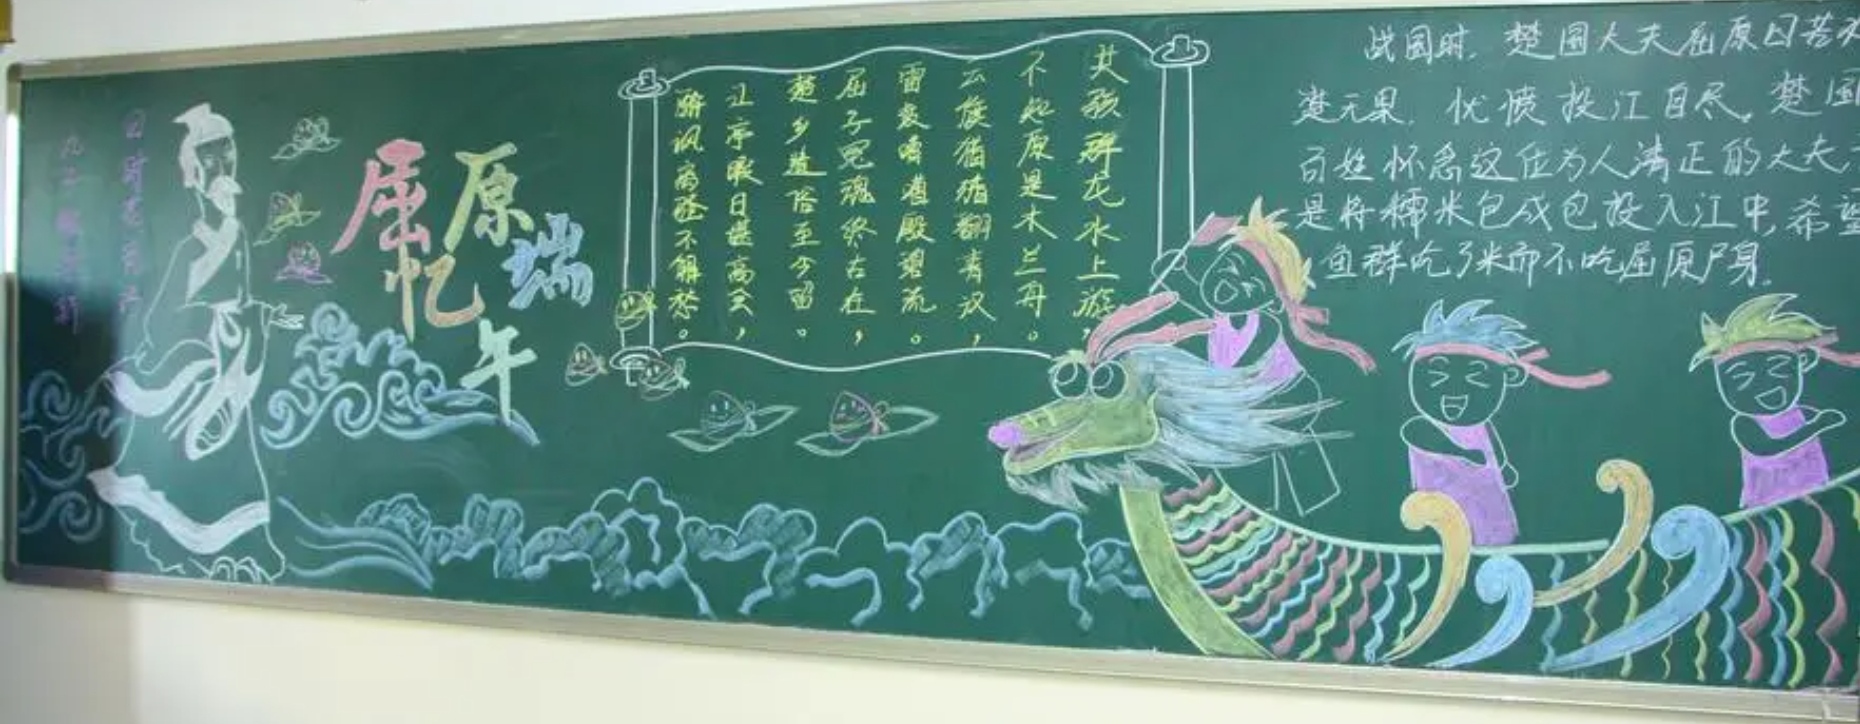 四时花竞巧
九子粽争新
屈原
忆端
午
共骇群龙水上游,
不知原是木兰舟。
云旗猎猎翻青汉,
雷鼓嘈嘈殷碧流。
屈子冤魂终古在,
楚乡遗俗至今留。
江亭暇日堪高会,
醉讽离骚不解愁。
战国时,楚国大夫屈原因苦
楚无果,忧愤投江自尽,楚国
百姓怀念这位为人清正的大夫,
是将糯米包成包投入江中,希望
鱼群吃了米而不吃屈原尸身.